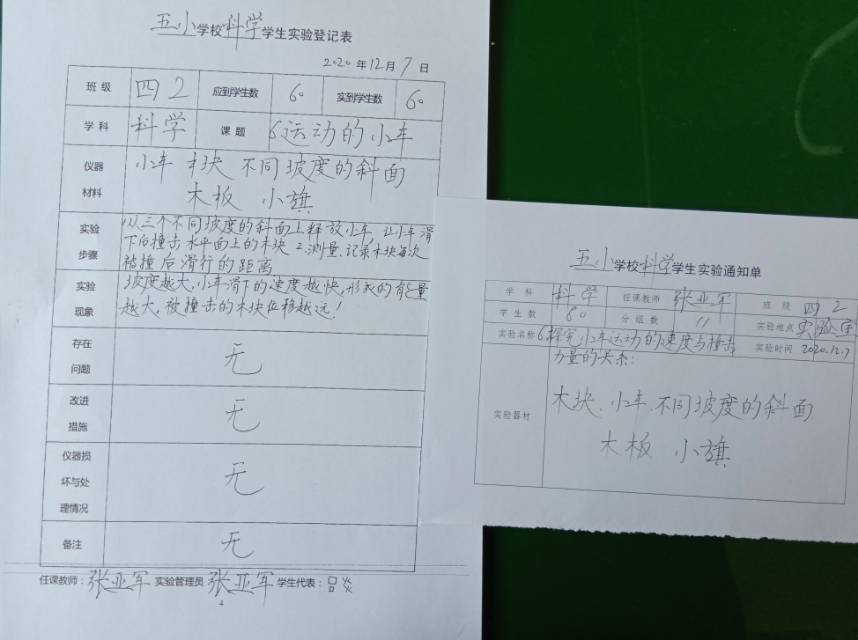 五小学校科学学生实验登记表
2020年12月7日
班级 四2 应到学生数 60 实到学生数 60
学科 科学 课题 6运动的小车
仪器材料 小车 木块 不同坡度的斜面
木板 小旗
实验步骤 1从三个不同坡度的斜面上释放小车,让小车滑
下后撞击水平面上的木块 2.测量、记录木块每次
被撞后滑行的距离
实验现象 坡度越大,小车滑下的速度越快,形成的能量
越大,被撞击的木块位移越远!
存在问题 无
改进措施 无
仪器损坏与处理情况 无
备注 无
任课教师:张亚军 实验管理员 张亚军 学生代表:
五小学校科学学生实验通知单
学科 科学 任课教师 张亚军 班级 四2
学生数 60 分组数 11 实验地点 实验室
实验名称 6探究小车运动的速度与撞击
力量的关系: 实验时间 2020.12.7
实验器材 木块、小车、不同坡度的斜面
木板 小旗